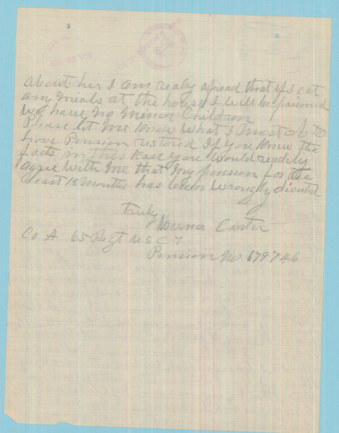 about her I am realy afread that if I eat
any meals at the house I will be poisned
We have no Minor Children
Please let me know what I must do to
have Pension restored If you knew the
facts in this Case you would readily
agree with me that My pension for the
last 15 months has been wrongly divided
Truly
Warner Carter
Co A 65 Regt U S C T
Pension No 679746